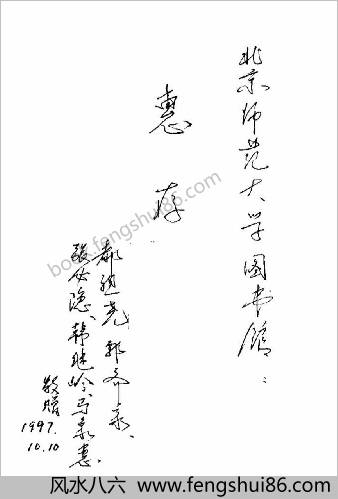 北京师范大学图书馆：
惠存
郭齐家、
张女隐、韩继岭、马泉惠
敬赠
1997.
10.10
book.fengshui86.com
风水八六 www.fengshui86.com